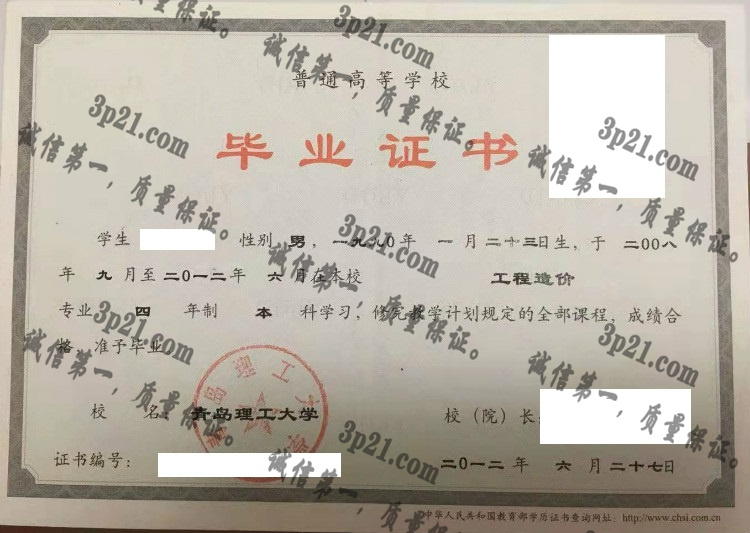 3p21.com
诚信第一，质量保证。
3p21.com
诚信第一，质量保证。
3p21.com
诚信第一，质量保证。
普通高等学校
毕业证书
学生 性别 男，一九九〇年 一月二十三日生，于 二〇〇八
年 九 月至 二〇一二年 六 月在本校 工程造价
专业 四 年制 本 科学习，修完教学计划规定的全部课程，成绩合
格，准予毕业。
3p21.com
诚信第一，质量保证。
3p21.com
诚信第一，质量保证。
3p21.com
诚信第一，质量保证。
青岛理工大学
校 名：青岛理工大学 校（院）长：
证书编号： 二〇一二年 六 月 二十七日
3p21.com
诚信第一，质量保证。
3p21.com
诚信第一，质量保证。
3p21.com
中华人民共和国教育部学历证书查询网址：http://www.chsi.com.cn